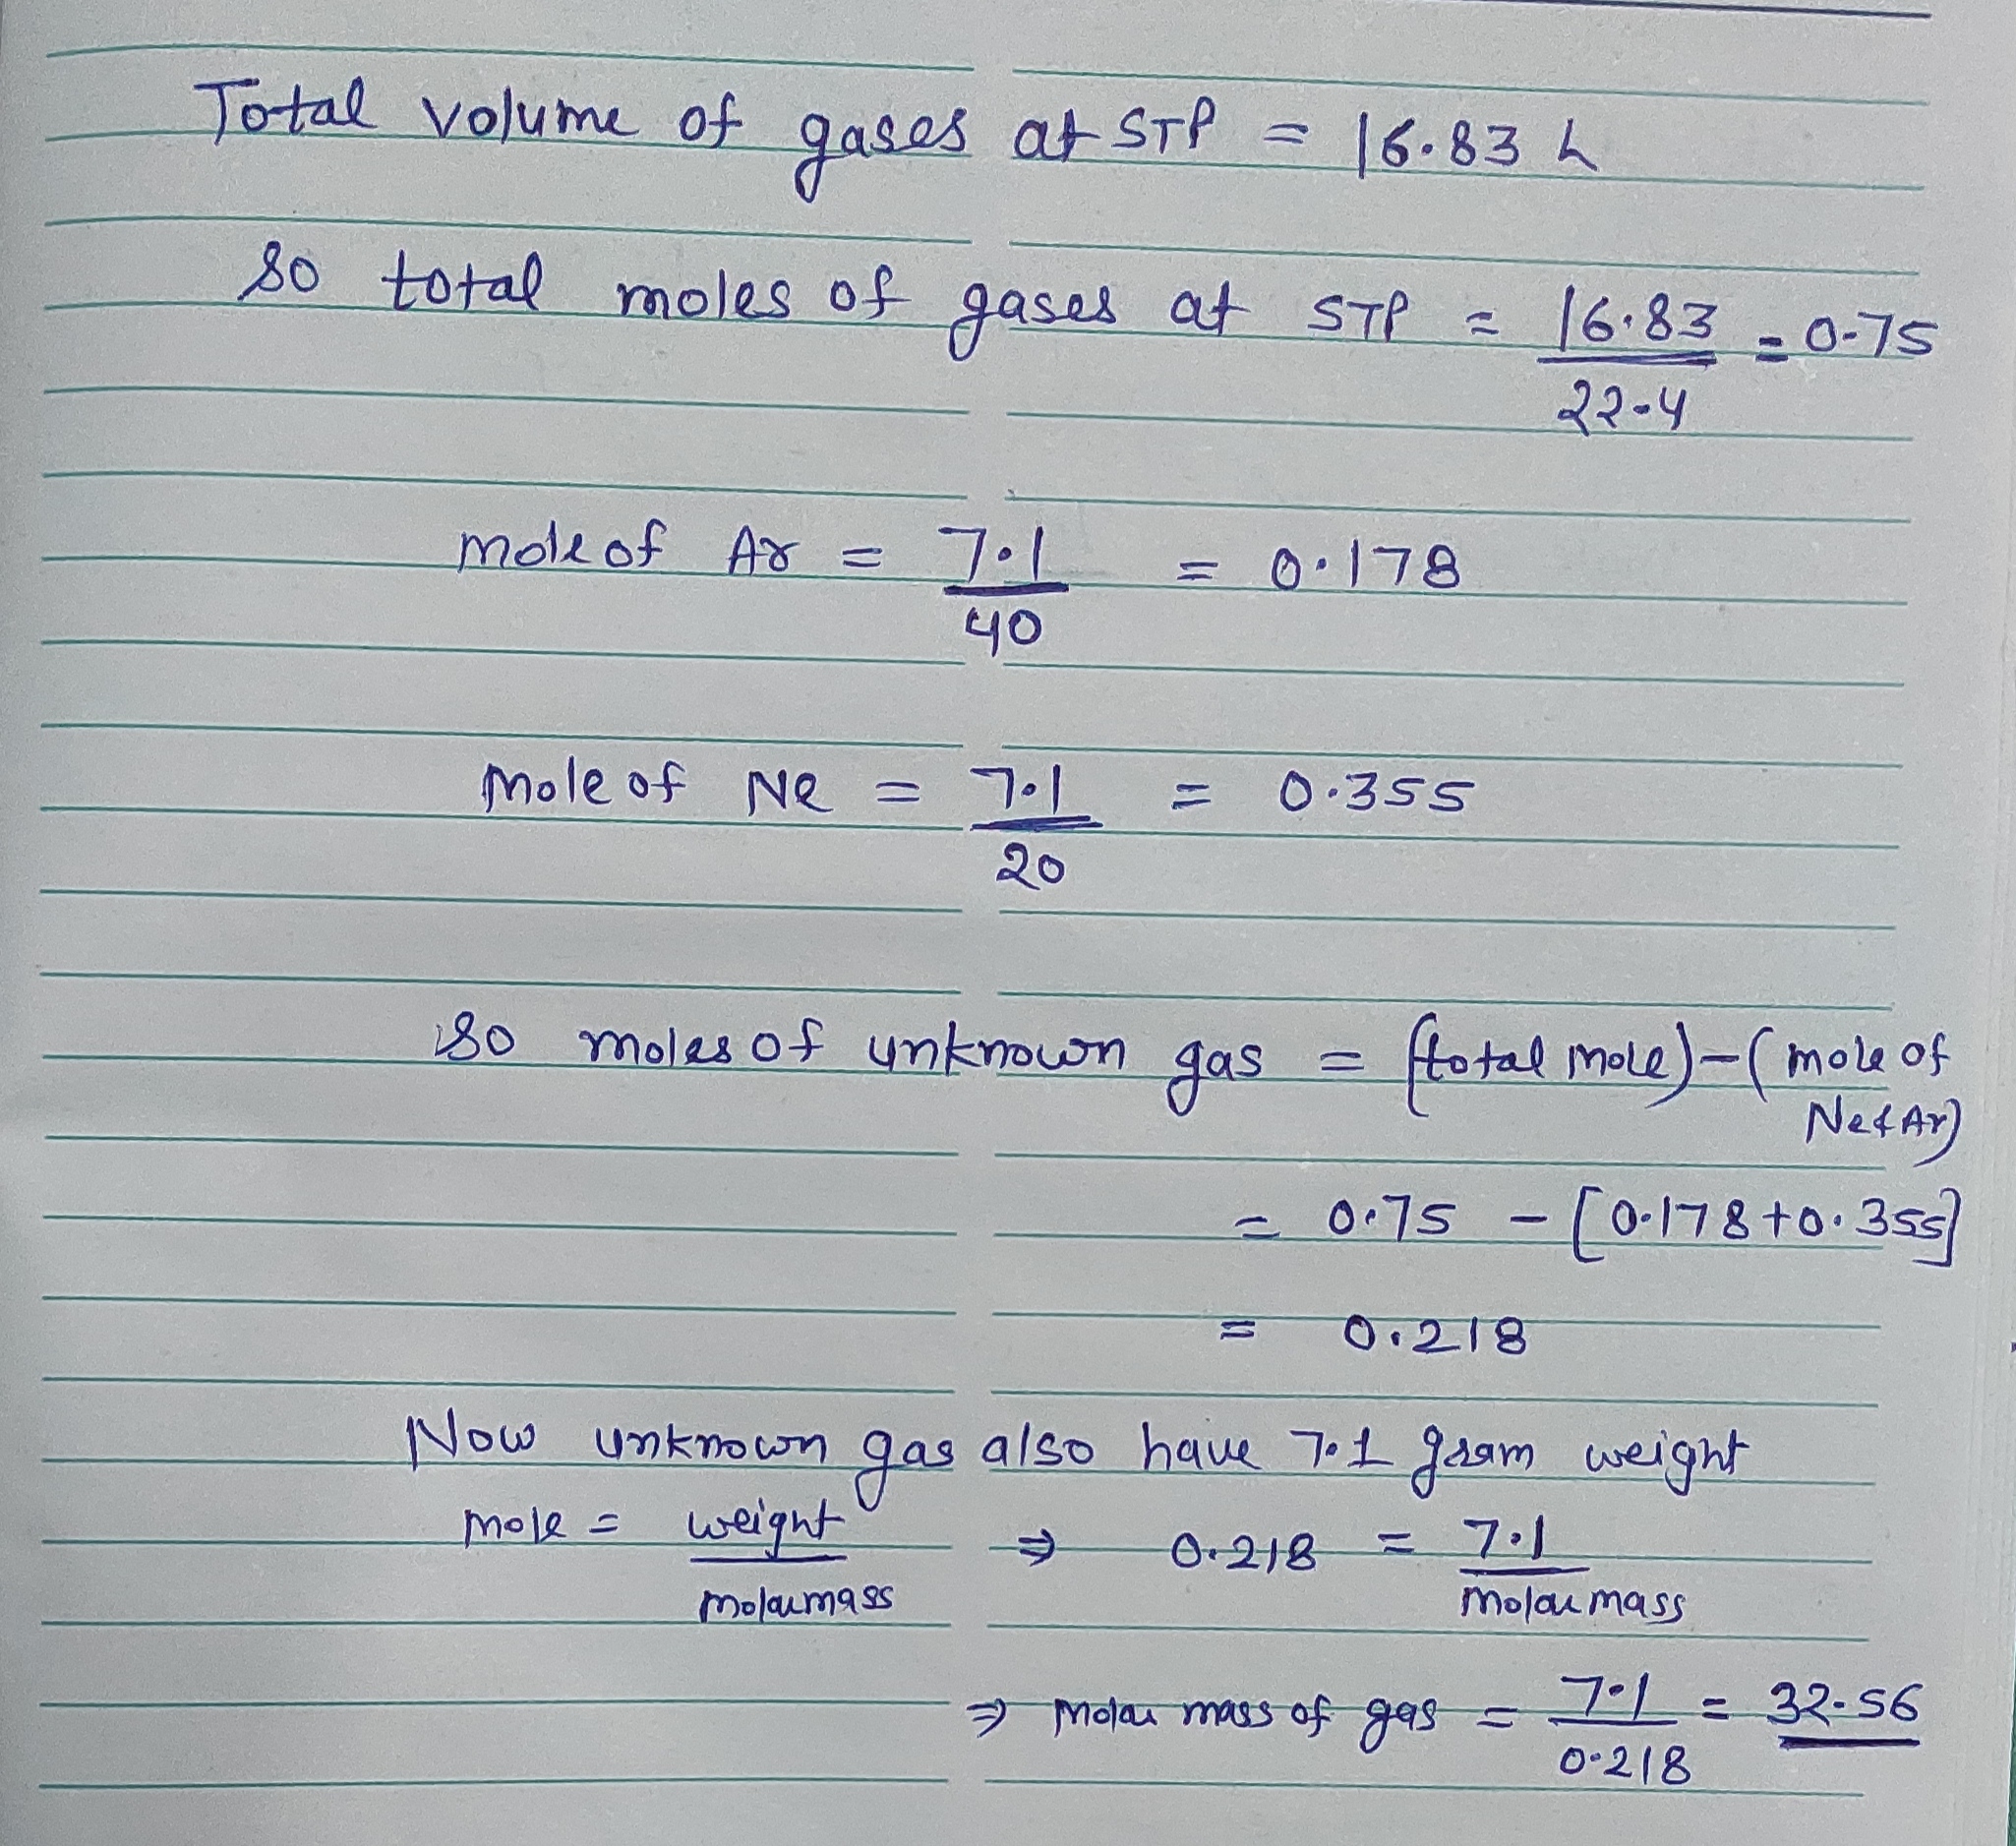 Total volume of gases at STP = 16.83 L
So total moles of gases at STP = 16.83 = 0.75
22.4
mole of Ar = 7.1 = 0.178
40
Mole of Ne = 7.1 = 0.355
20
So moles of unknown gas = (total mole) - (mole of
Ne & Ar)
= 0.75 - [0.178 + 0.355]
= 0.218
Now unknown gas also have 7.1 gram weight
mole = weight ⇒ 0.218 = 7.1
molar mass molar mass
⇒ molar mass of gas = 7.1 = 32.56
0.218